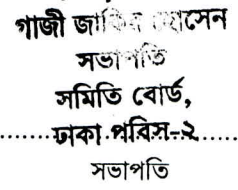 গাজী জাকির হোসেন
সভাপতি
সমিতি বোর্ড,
ঢাকা পবিস-২
সভাপতি